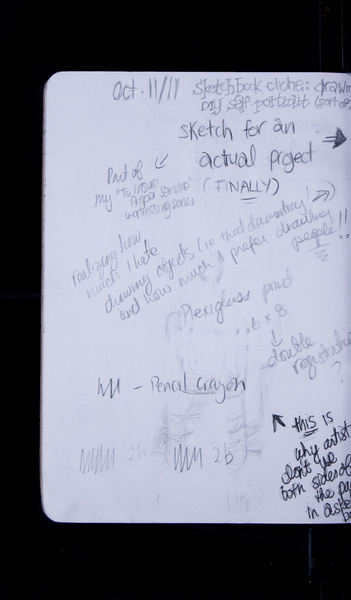 Oct. 11/11
sketchbook cliche: drawin
DIY self portrait (sort of
sketch for an
actual project
(FINALLY)
Part of
my "To Insure
Proper Service"
series
realizing how
much I hate
drawing objects (ie that damn
and how much I prefer drawing
people!!
Plexiglass print
6 x 8
double
registration
?
- Pencil crayon
2h
2b
this is
why artist
don't use
both sides of
the pa
in a ske